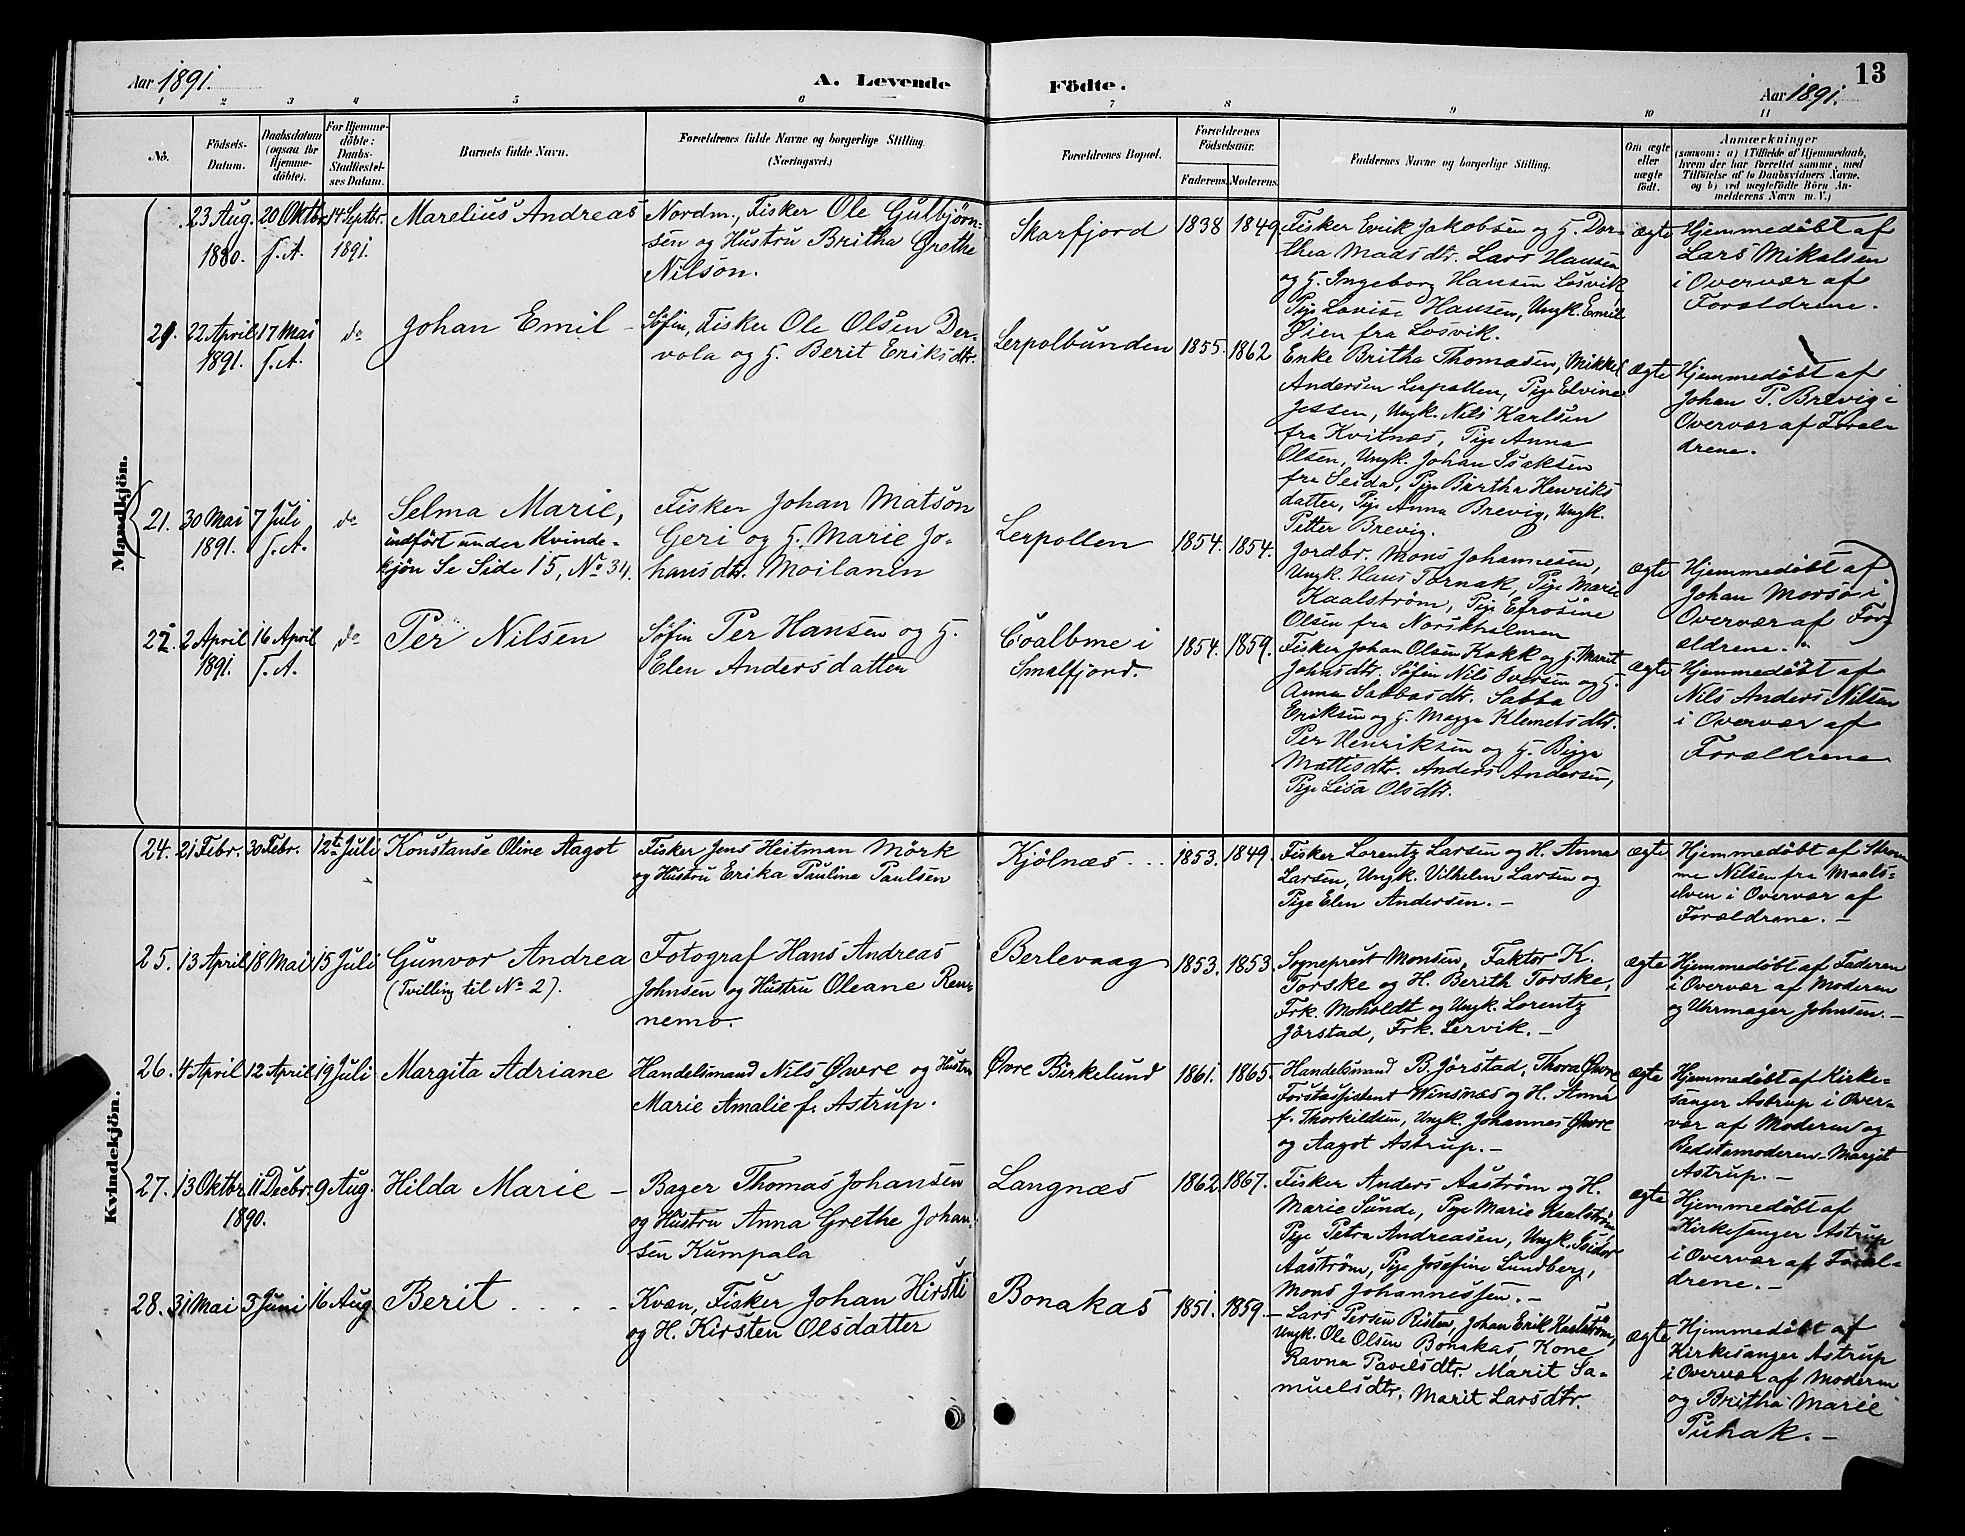 Aar 1891.
A. Levende
Födte.
Aar 1891.
13
1 2 3 4 5 6 7 8 9 10 11
No.
Födsels-
Datum.
Daabsdatum
(ogsaa for
Hjemme-
döbte).
For Hjemme-
döbte:
Daabs-
Stadfæstel-
ses Datum.
Barnets fulde Navn.
Forældrenes fulde Navne og borgerlige Stilling
(Næringsvei.)
Forældrenes Bopæl.
Forældrenes
Födselsaar.
Faderens. Moderens.
Faddernes Navne og borgerlige Stilling.
Om ægte
eller
uægte
födt.
Anmærkninger
(saasom: a) i Tilfælde af Hjemmedaab,
hvem der har forrettet samme, med
Tilföielse af to Daabsvidners Navne.
og b) ved uægtefödte Börn An-
melderens Navn m. V.)
Mandkjön.
23 Aug.
1880.
20 Oktbr.
T. A.
14 Septbr.
1891.
Marelius Andreas
Nordm., Fisker Ole Gulbjørn-
sen og Hustru Britha Grethe
Nilson.
Skarfjord
1838 1849.
Fisker Erik Jakobsen og H. Dor-
thea Madsdtr. Lars Hansen
og H. Ingeborg Hansen Losvik
Pige Lovise Hansen, Ungk. Emil
Øien fra Losvik.
ægte
Hjemmedøbt af
Lars Mikalsen
i Overvær af
Forældrene.
21. 22 April
1891.
17 Mai
T. A.
do
Johan Emil
Søfin, Fisker Ole Olsen Der-
vola og H. Berit Eriksdtr.
Lerpolbunden
1855. 1862
Enke Britha Thomasen, Mikkel
Andersen Lerpollen, Pige Elvine
Jessen, Ungk. Nils Karlsen
fra Kvitnæs, Pige Anna
Olsen, Ungk. Johan Isaksen
fra Seida, Pige Birtha Henriks
datter, Pige Anna Brevig, Ungk.
Petter Brevig.
ægte
Hjemmedøbt af
Johan P. Brevig i
Overvær af Foræl-
drene.
21. 30 Mai
1891.
7 Juli
T. A.
do
Selma Marie,
indført under Kvinde-
kjøn Se Side 15, No 34.
Fisker Johan Matson
Geri og H. Marie Jo-
hansdtr. Moilanen
Lerpollen
1854. 1854.
Jordbr. Mons Johannesen,
Ungk. Hans Tornak, Pige Marie
Kaalström, Pige Efrosine
Olsen fra Norskholmen
ægte
Hjemmedøbt af
Johan Morsö i
Overvær af For-
ældrene.
22. 2 April
1891.
16 April
T. A.
do
Per Nilsen
Søfin Per Hansen og H.
Elen Andersdatter
Coalbme i
Smalfjord.
1854. 1859.
Fisker Johan Olsen Kokk og H. Marit
Johnsdtr. Søfin Nils Iversen og H.
Anna Sabbasdtr. Sabba
Eriksen og H. Magga Klemetsdtr.
Per Henriksen og H. Bigga
Mattisdtr. Anders Andersen,
Pige Lisa Olsdtr.
ægte
Hjemmedøbt af
Nils Anders Nilsen
i Overvær af
Forældrene
Kvindekjön.
24. 21 Febr. 30 Febr. 12te Juli
Konstanse Oline Aagot
Fisker Jens Heitman Mörk
og Hustru Erika Pauline Paulsen
Kjölnæs
1853. 1849.
Fisker Lorentz Larsen og H. Anna
Larsen, Ungk. Vilhelm Larsen og
Pige Elen Andersen. –
ægte
Hjemmedøbt af
me Nilsen fra Maals-
elven i Overvær af
Forældrene. –
25. 13 April 18 Mai 15 Juli
Gunvor Andrea
(Tvilling til No 2).
Fotograf Hans Andreas
Johnsen og Hustru Oleane Ren-
nemo.
Berlevaag
1853. 1853.
Sogneprest Monsen, Faktor K.
Torske og H. Berith Torske,
Frk. Moholdt og Ungk. Lorentz
Jörstad, Frk. Lervik. –
ægte
Hjemmedøbt af Faderen
i Overvær af Moderen
og Uhrmager Johnsen. –
26. 4 April 12 April 19 Juli
Margita Adriane
Handelsmand Nils Øwre og Hustru
Marie Amalie f. Astrup.
Øvre Birkelund
1861. 1865.
Handelsmand B. Jörstad, Thora Øwre
Forstassistent Winsnæs og H. Anna
f. Thorkildsen, Ungk. Johannes Øwre
og Aagot Astrup. –
ægte
Hjemmedøbt af Kirke-
sanger Astrup i Over-
vær af Moderen og
Bedstemoderen Margit
Astrup. –
27. 13 Oktbr. 11 Decbr. 9 Aug.
1890.
Hilda Marie –
Bager Thomas Johansen
og Hustru Anna Grethe Johan-
sen Kumpala
Langnæs
1862. 1867.
Fisker Anders Aaström og H.
Marie Sunde, Pige Marie Kaalström
Pige Petra Andreasen, Ungk. Isidor
Aaström, Pige Josefine Lundberg,
Mons Johannessen. –
ægte
Hjemmedøbt af
Kirkesanger Astrup
i Overvær af Foræl-
drene. –
28. 31 Mai 3 Juni 16 Aug.
Berit
Kvæn, Fisker Johan Hirsti
og H. Kirsten Olsdatter
Bonakas
1851. 1859.
– Lars Persen Risten, Johan Erik Kaalström,
Ungk. Ole Olsen Bonakas, Kone
Ravna Pavelsdtr. Marit Sa-
muelsdtr, Marit Larsdtr.
ægte
Hjemmedøbt af
Kirkesanger Astrup
i Overvær af Moderen
og Britha Marie
Puhak. –